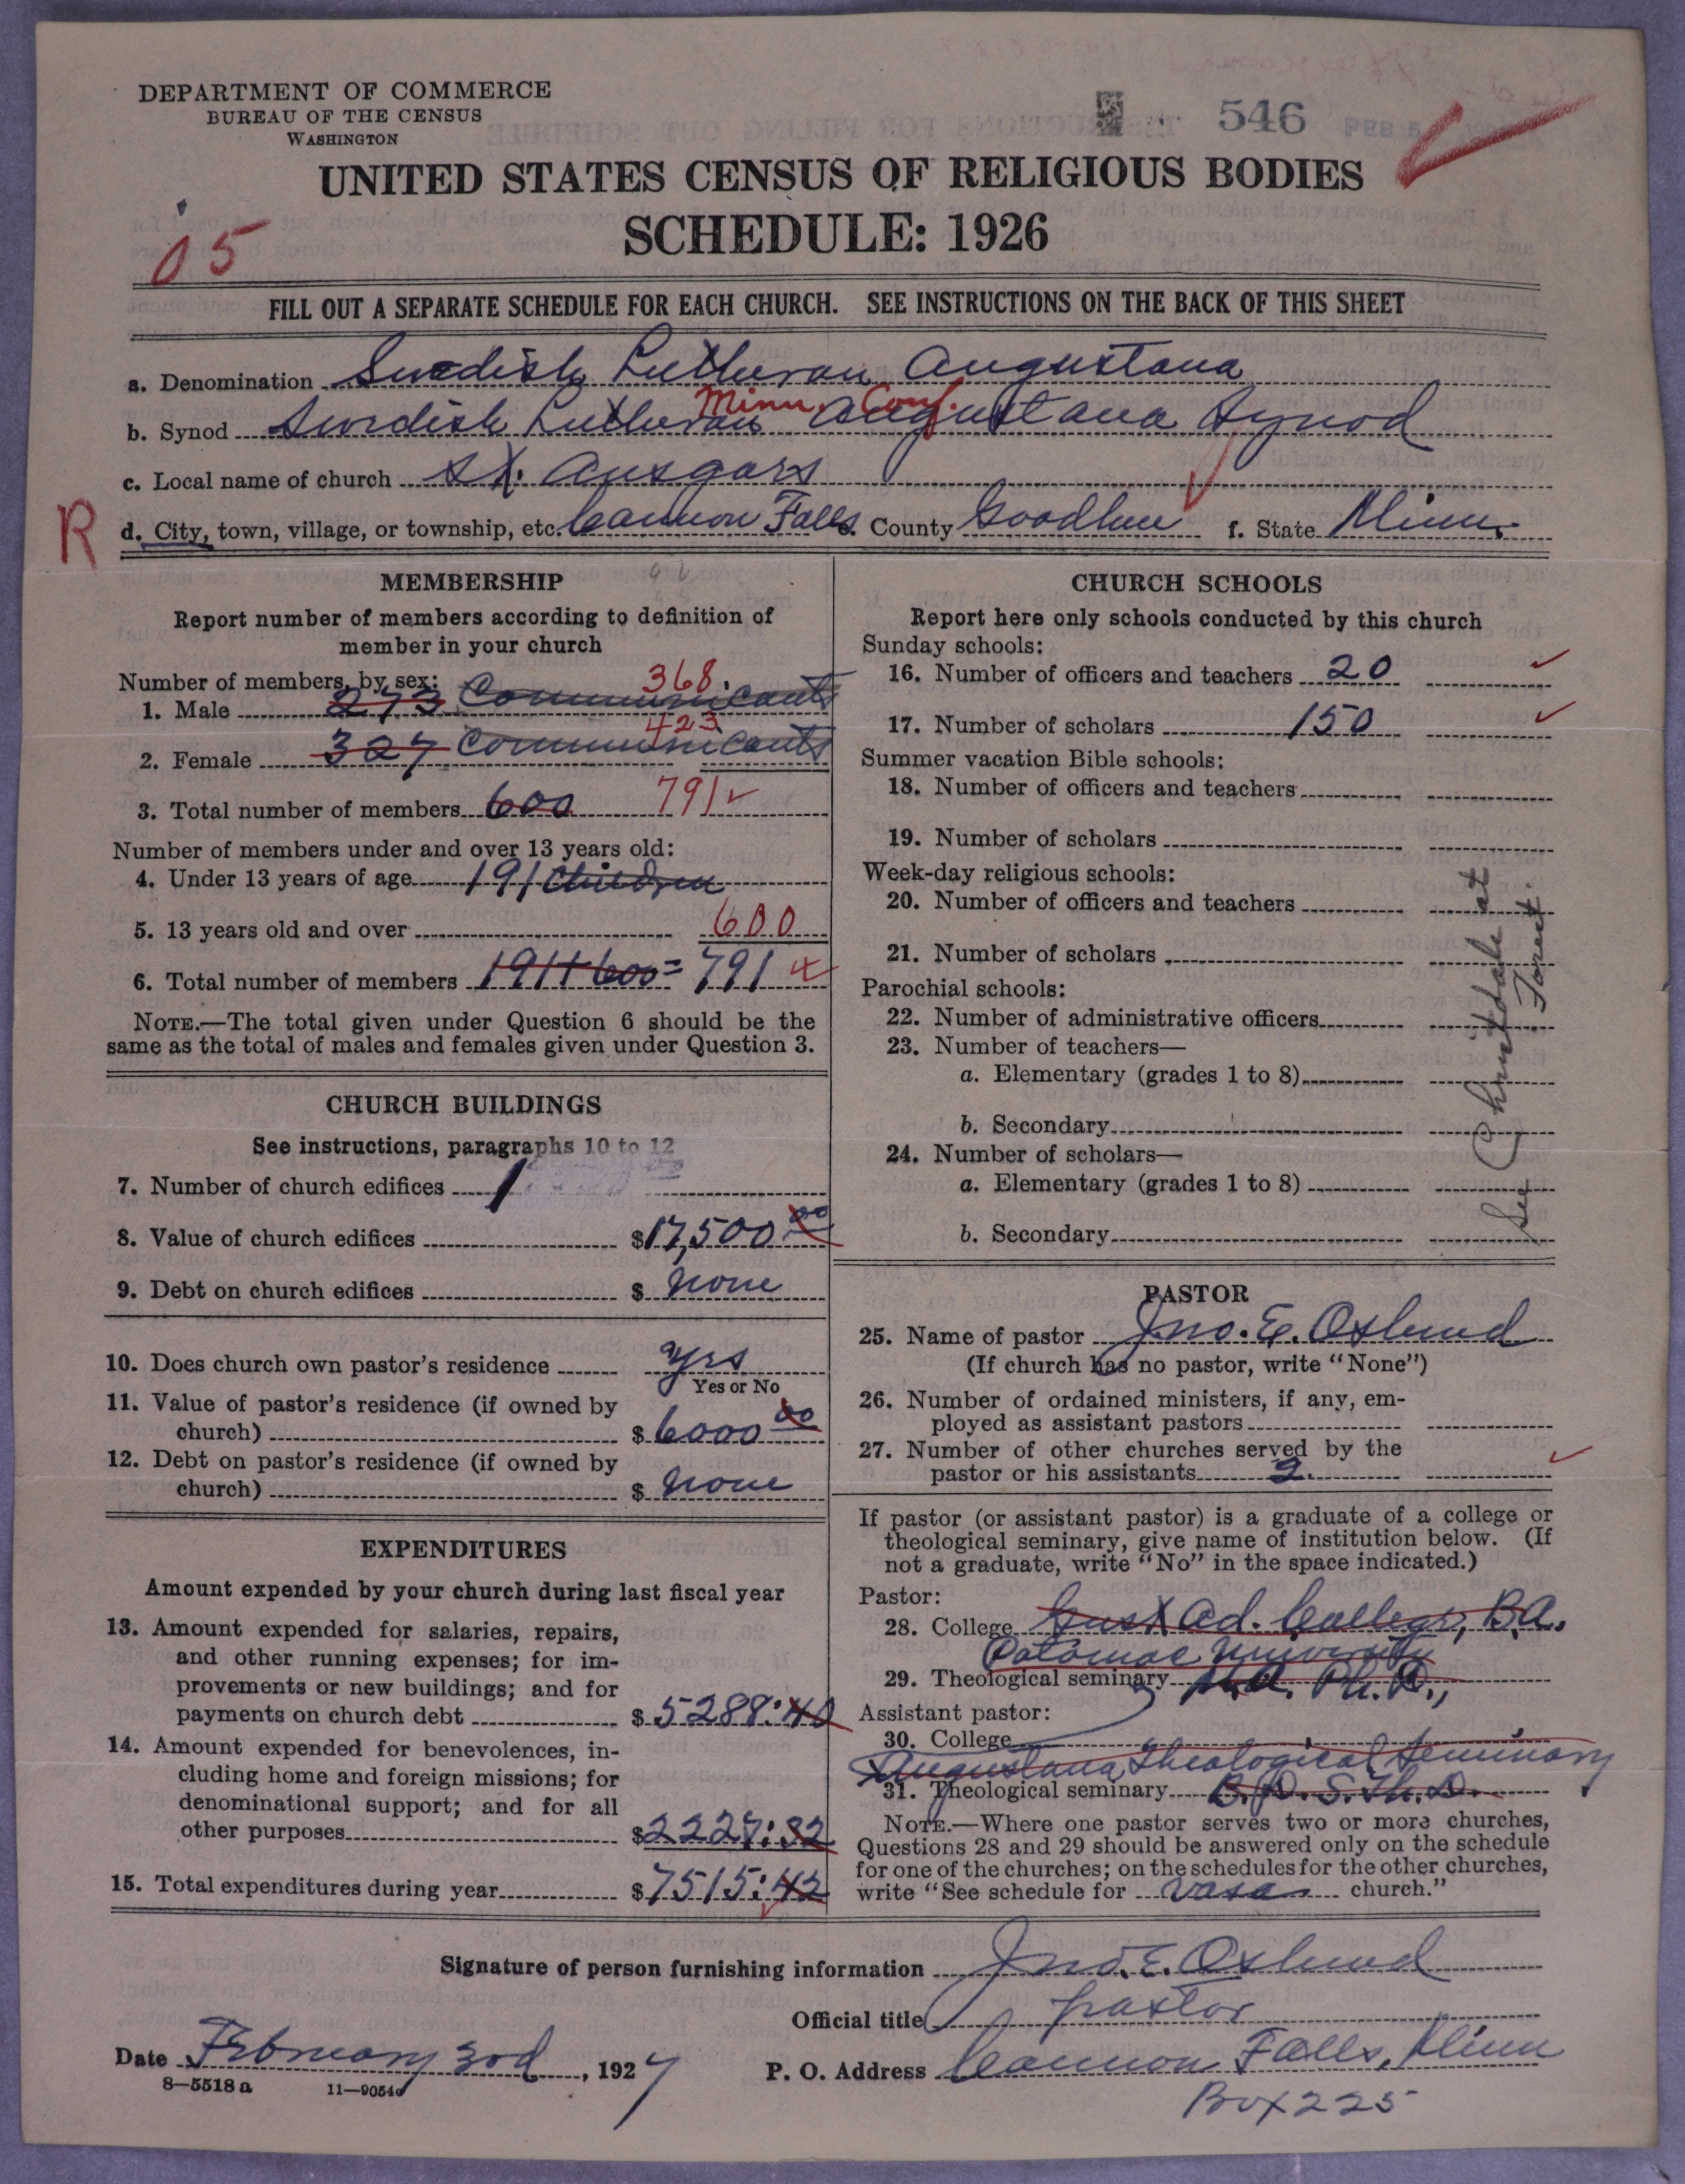 DEPARTMENT OF COMMERCE
BUREAU OF THE CENSUS
WASHINGTON
546 FEB 5
UNITED STATES CENSUS OF RELIGIOUS BODIES
SCHEDULE: 1926
05
FILL OUT A SEPARATE SCHEDULE FOR EACH CHURCH. SEE INSTRUCTIONS ON THE BACK OF THIS SHEET
a. Denomination Swedish Lutheran Augustana
Minn. Conf.
b. Synod Swedish Lutheran Augustana Synod
c. Local name of church St. Ansgars
R d. City, town, village, or township, etc. Cannon Falls e. County Goodhue f. State Minn.
MEMBERSHIP
Report number of members according to definition of
member in your church
Number of members, by sex: 368.
1. Male 273 Communicants
423
2. Female 327 Communicants
3. Total number of members 600 791
Number of members under and over 13 years old:
4. Under 13 years of age 191 Children
5. 13 years old and over 600
6. Total number of members 191+600= 791
NOTE.—The total given under Question 6 should be the
same as the total of males and females given under Question 3.
CHURCH BUILDINGS
See instructions, paragraphs 10 to 12
7. Number of church edifices 1
8. Value of church edifices $17,500 00
9. Debt on church edifices $ none
10. Does church own pastor's residence Yes
Yes or No
11. Value of pastor's residence (if owned by
church) $ 6000 00
12. Debt on pastor's residence (if owned by
church) $ none
EXPENDITURES
Amount expended by your church during last fiscal year
13. Amount expended for salaries, repairs,
and other running expenses; for im-
provements or new buildings; and for
payments on church debt $ 5288:40
14. Amount expended for benevolences, in-
cluding home and foreign missions; for
denominational support; and for all
other purposes $2227:32
15. Total expenditures during year $7515:42
CHURCH SCHOOLS
Report here only schools conducted by this church
Sunday schools:
16. Number of officers and teachers 20
17. Number of scholars 150
Summer vacation Bible schools:
18. Number of officers and teachers
19. Number of scholars
Week-day religious schools:
20. Number of officers and teachers
21. Number of scholars
Parochial schools:
22. Number of administrative officers
23. Number of teachers—
a. Elementary (grades 1 to 8)
b. Secondary
24. Number of scholars—
a. Elementary (grades 1 to 8)
b. Secondary
See Christdale at
PASTOR
25. Name of pastor Jno. E. Oslund
(If church has no pastor, write "None")
26. Number of ordained ministers, if any, em-
ployed as assistant pastors
27. Number of other churches served by the
pastor or his assistants 2.
If pastor (or assistant pastor) is a graduate of a college or
theological seminary, give name of institution below. (If
not a graduate, write "No" in the space indicated.)
Pastor:
28. College Gust Ad. College, B.A.
Potomac University
29. Theological seminary M.A. Ph.D.,
Assistant pastor:
30. College
Augustana Theological Seminary
31. Theological seminary B.D. S.Th.D.
NOTE.—Where one pastor serves two or more churches,
Questions 28 and 29 should be answered only on the schedule
for one of the churches; on the schedules for the other churches,
write "See schedule for Vasa church."
Signature of person furnishing information Jno. E. Oslund
Official title pastor
Date February 3rd, 1927 P. O. Address Cannon Falls, Minn
8—5518 a 11—9054
Box 225